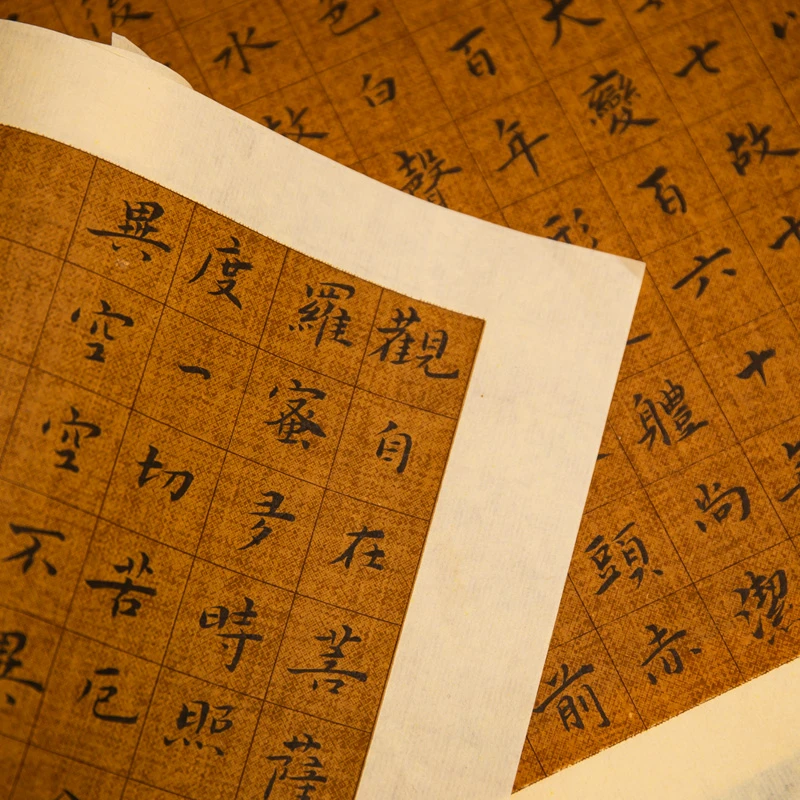 觀自在菩薩
羅蜜多時照
度一切苦厄
異空空不異
七故
大變百六十
百年形
體尚潔
色白聲
頭赤
水故
前
後